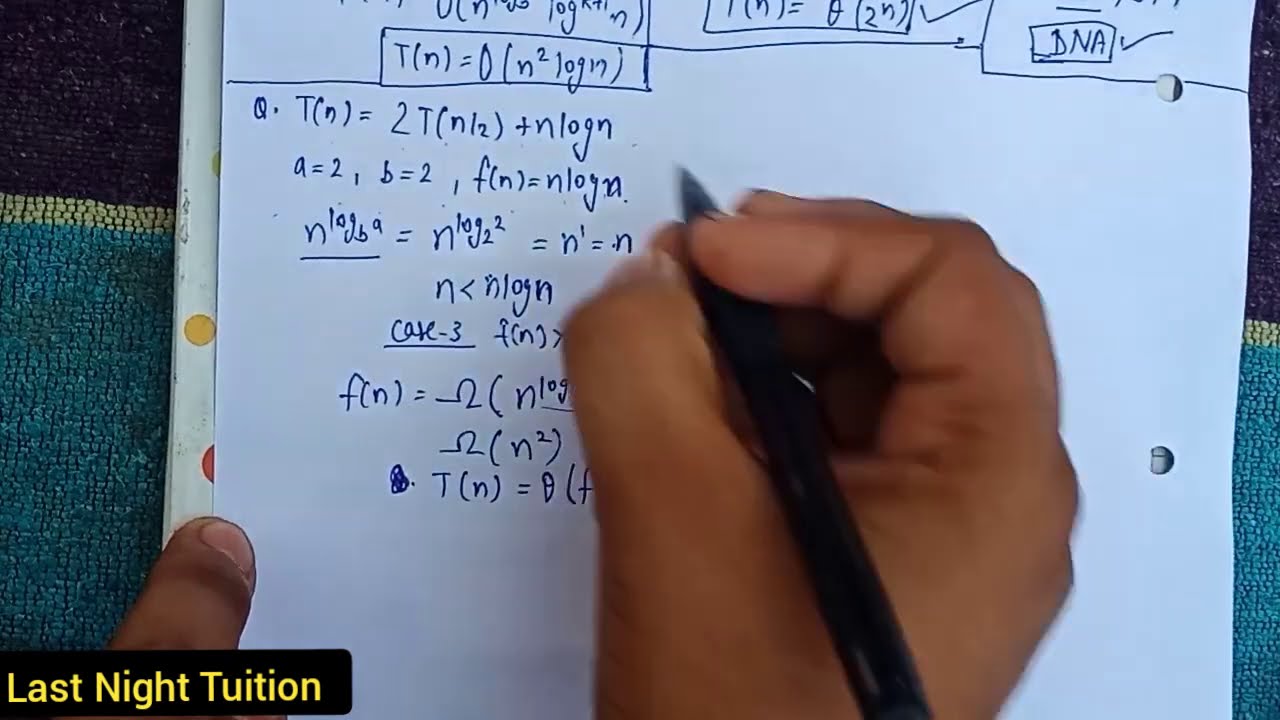 log^{k+1} n)
T(n) = θ(2^n)
DNA
T(n) = θ(n² log n)
Q. T(n) = 2T(n/2) + n log n
a = 2, b = 2, f(n) = n log n.
n^{log_b a} = n^{log_2 2} = n¹ = n
n < n log n
Case-3 f(n) >
f(n) = Ω(n^{log
Ω(n²)
T(n) = θ(f
Last Night Tuition